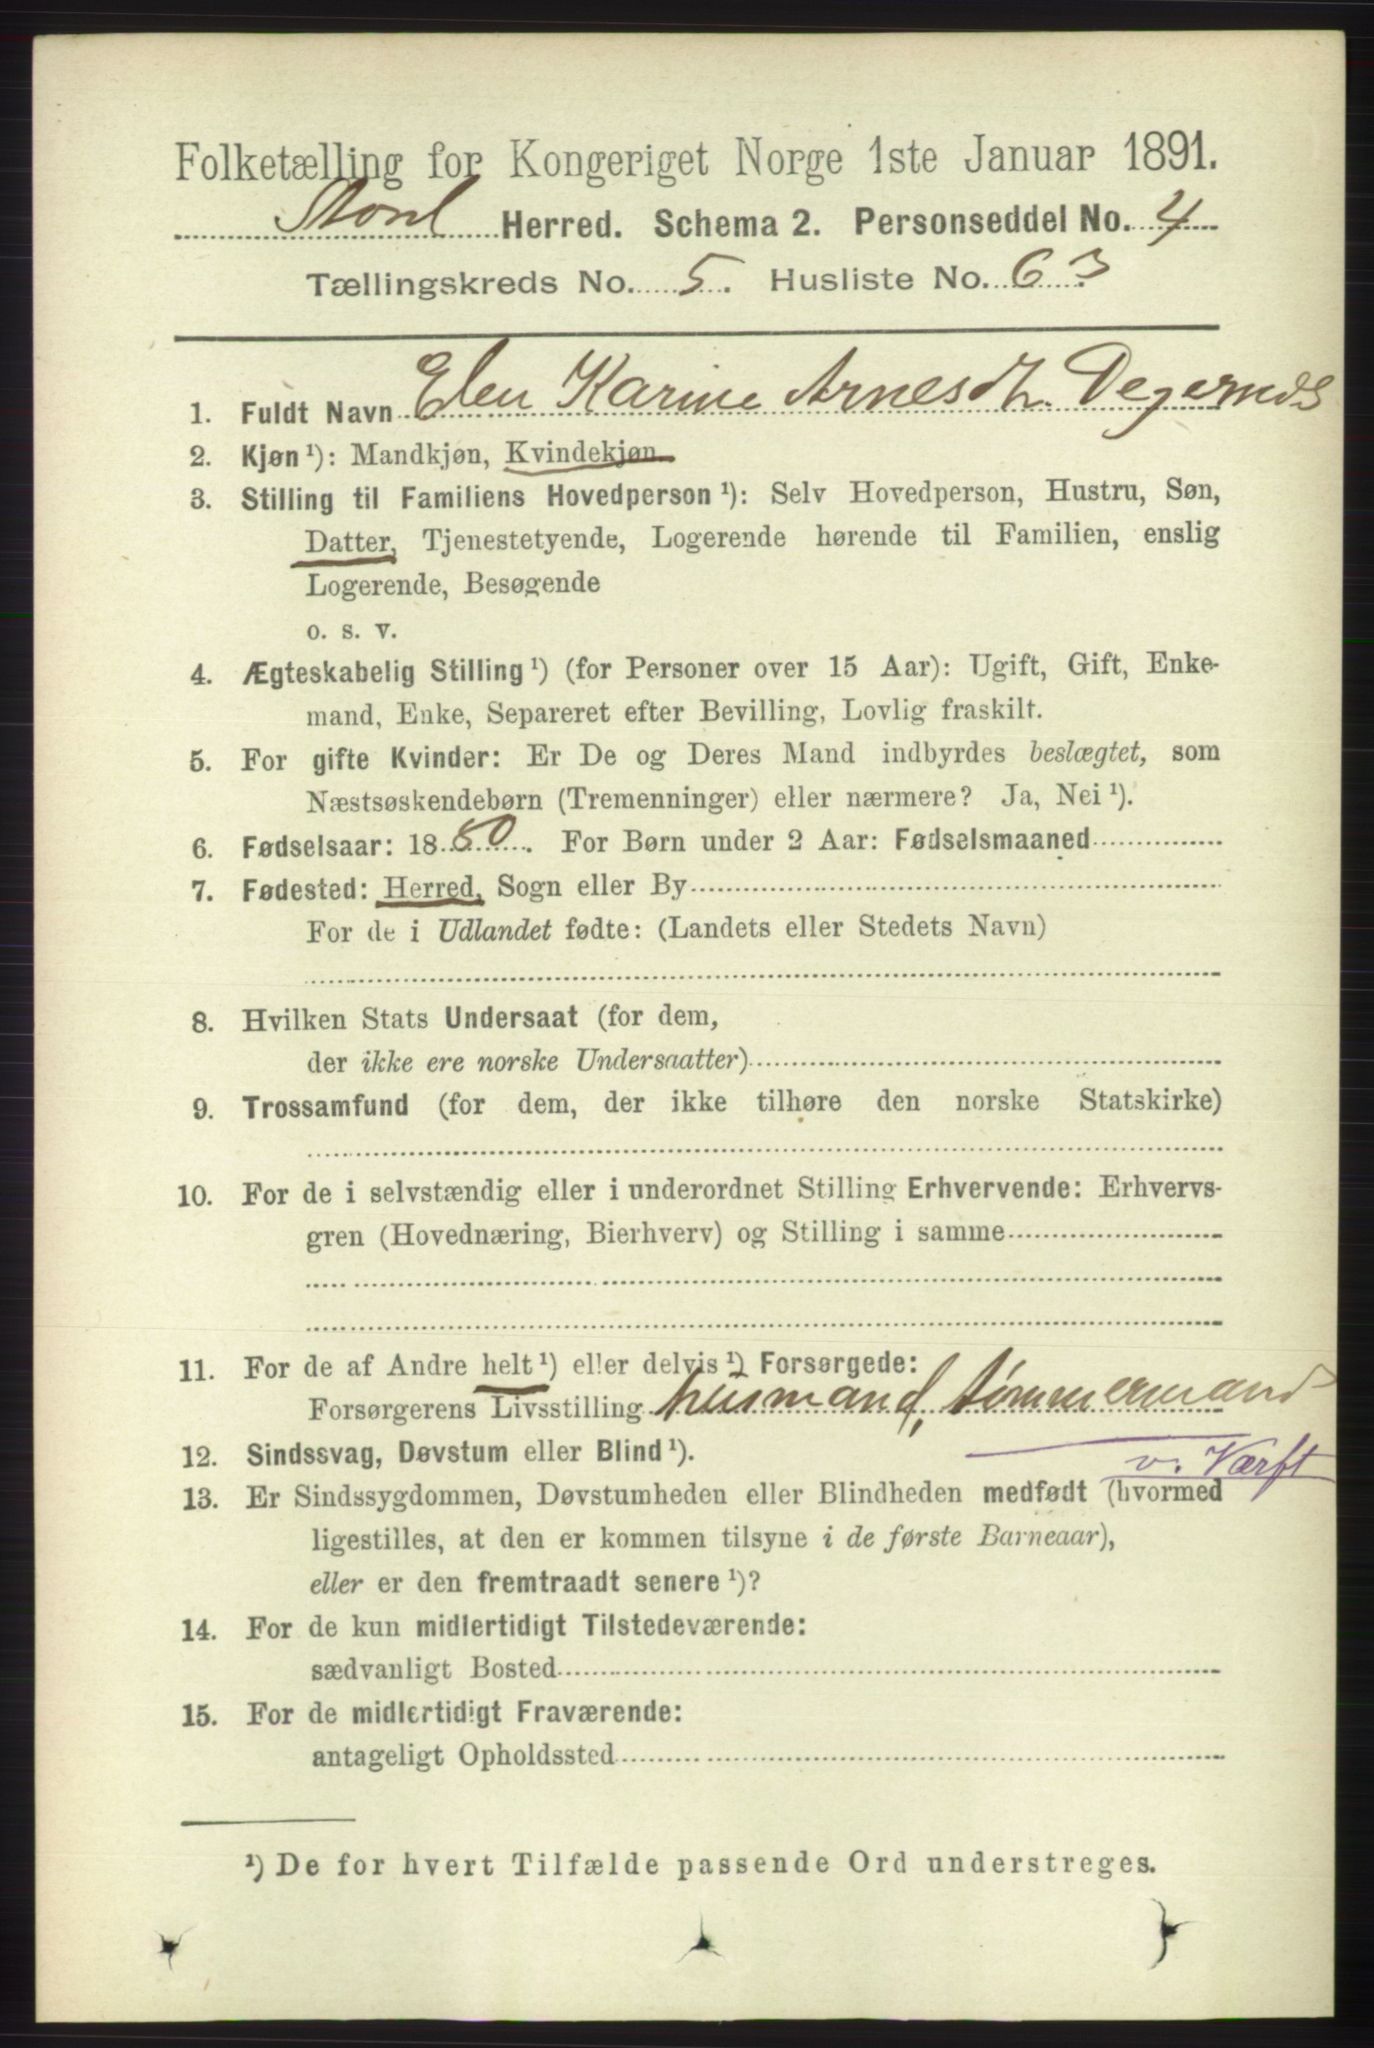 Folketælling for Kongeriget Norge 1ste Januar 1891.
Stord Herred. Schema 2. Personseddel No. 4
Tællingskreds No. 5. Husliste No. 63
1. Fuldt Navn Elen Karine Arnesdt. Degernæs
2. Kjøn ¹): Mandkjøn, Kvindekjøn
3. Stilling til Familiens Hovedperson ¹): Selv Hovedperson, Hustru, Søn,
Datter, Tjenestetyende, Logerende hørende til Familien, enslig
Logerende, Besøgende
o. s. v.
4. Ægteskabelig Stilling ¹) (for Personer over 15 Aar): Ugift, Gift, Enke-
mand, Enke, Separeret efter Bevilling, Lovlig fraskilt.
5. For gifte Kvinder: Er De og Deres Mand indbyrdes beslægtet, som
Næstsøskendebørn (Tremenninger) eller nærmere? Ja, Nei ¹).
6. Fødselsaar: 1880. For Børn under 2 Aar: Fødselsmaaned
7. Fødested: Herred, Sogn eller By
For de i Udlandet fødte: (Landets eller Stedets Navn)
8. Hvilken Stats Undersaat (for dem,
der ikke ere norske Undersaatter)
9. Trossamfund (for dem, der ikke tilhøre den norske Statskirke)
10. For de i selvstændig eller i underordnet Stilling Erhvervende: Erhvervs-
gren (Hovednæring, Bierhverv) og Stilling i samme
11. For de af Andre helt ¹) eller delvis ¹) Forsørgede:
Forsørgerens Livsstilling husmand, tømmermand
12. Sindssvag, Døvstum eller Blind ¹). v. Værft
13. Er Sindssygdommen, Døvstumheden eller Blindheden medfødt (hvormed
ligestilles, at den er kommen tilsyne i de første Barneaar),
eller er den fremtraadt senere ¹)?
14. For de kun midlertidigt Tilstedeværende:
sædvanligt Bosted
15. For de midlertidigt Fraværende:
antageligt Opholdssted
¹) De for hvert Tilfælde passende Ord understreges.